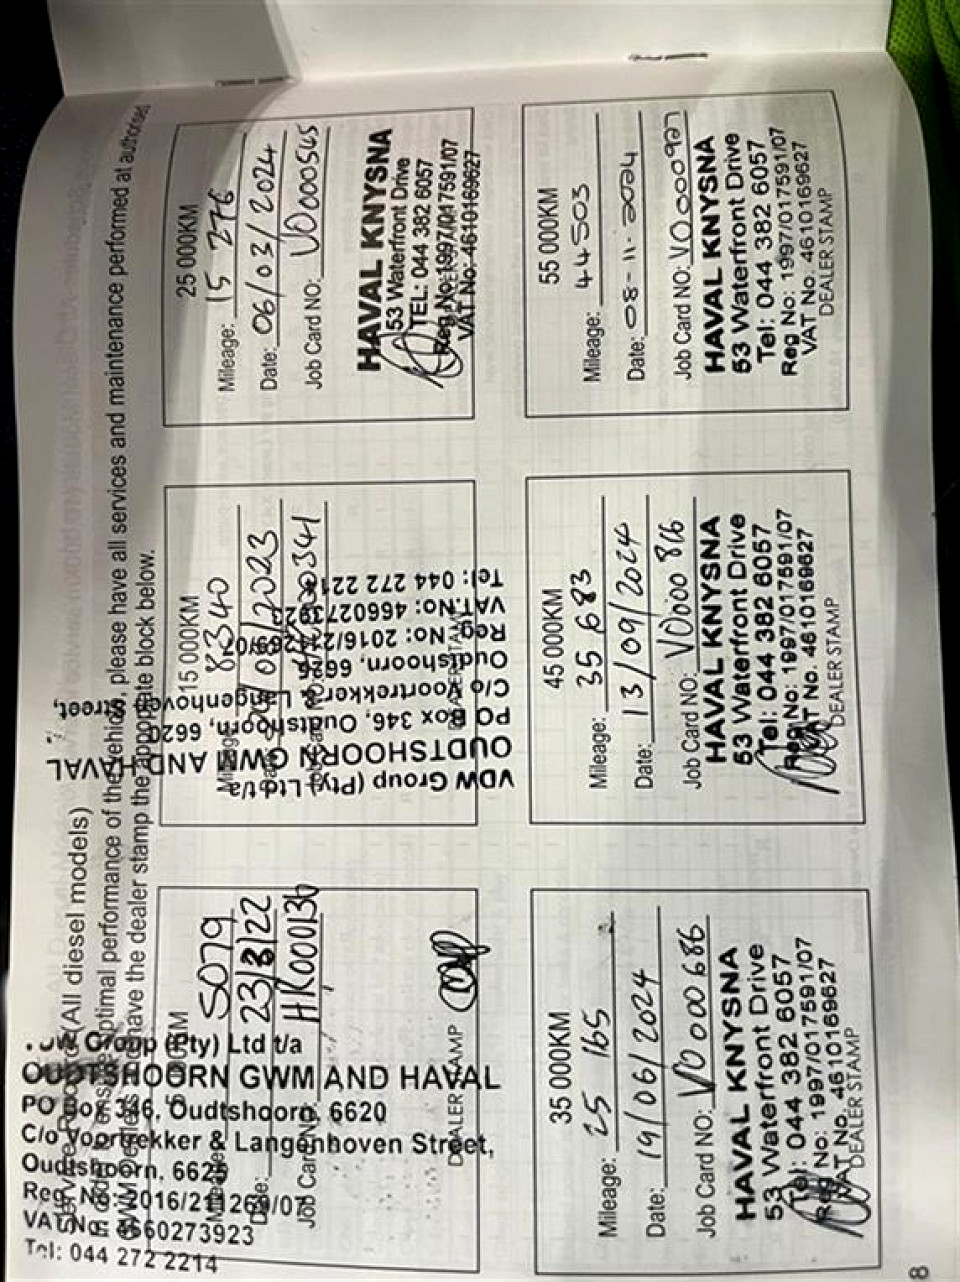 (All diesel models)
optimal performance of the vehicle, please have all services and maintenance performed at authorised
have the dealer stamp the appropriate block below.
Group (Pty) Ltd t/a
OUDTSHOORN GWM AND HAVAL
PO Box 346, Oudtshoorn, 6620
C/o Voortrekker & Langenhoven Street,
Oudtshoorn, 6625
Reg. No: 2016/211269/07
VAT.No: 4660273923
Tel: 044 272 2214
5079
23/8/22
HK000136
DEALER STAMP
15 000KM
Mileage: 8340
2023
VDW Group (Pty) Ltd t/a
OUDTSHOORN GWM AND HAVAL
PO Box 346, Oudtshoorn, 6620
C/o Voortrekker & Langenhoven Street,
Oudtshoorn, 6625
Reg. No: 2016/211269/07
VAT.No: 4660273923
Tel: 044 272 221
25 000KM
Mileage: 15 276
Date: 06/03/2024
Job Card NO: V0000545
HAVAL KNYSNA
53 Waterfront Drive
TEL: 044 382 6057
Reg No: 1997/017591/07
VAT No: 4610169627
35 000KM
Mileage: 25 165
Date: 19/06/2024
Job Card NO: V0000686
HAVAL KNYSNA
53 Waterfront Drive
Tel: 044 382 6057
Reg No: 1997/017591/07
VAT No. 4610169627
DEALER STAMP
45 000KM
Mileage: 35 683
Date: 13/09/2024
Job Card NO: V0000816
HAVAL KNYSNA
53 Waterfront Drive
Tel: 044 382 6057
Reg No: 1997/017591/07
VAT No. 4610169627
DEALER STAMP
55 000KM
Mileage: 44503
Date: 08-11-2024
Job Card NO: V0000927
HAVAL KNYSNA
53 Waterfront Drive
Tel: 044 382 6057
Reg No: 1997/017591/07
VAT No. 4610169627
DEALER STAMP
8